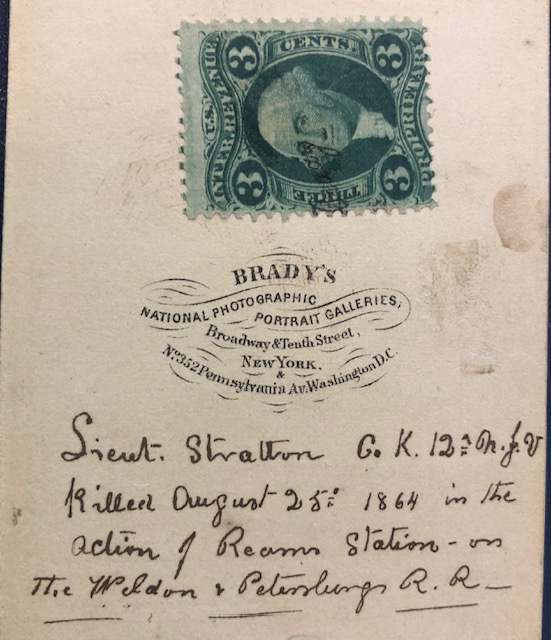 3 CENTS. 3
U.S. INTER. REVENUE
PROPRIETARY
3 THREE 3
BRADY'S
NATIONAL PHOTOGRAPHIC PORTRAIT GALLERIES,
Broadway & Tenth Street,
NEW YORK.
&
No. 352 Pennsylvania Av. Washington D.C.
Lieut. Stratton Co. K. 12th N.J.V
Killed August 25th 1864 in the
action of Reams Station - on
the Weldon & Petersburgs R.R -